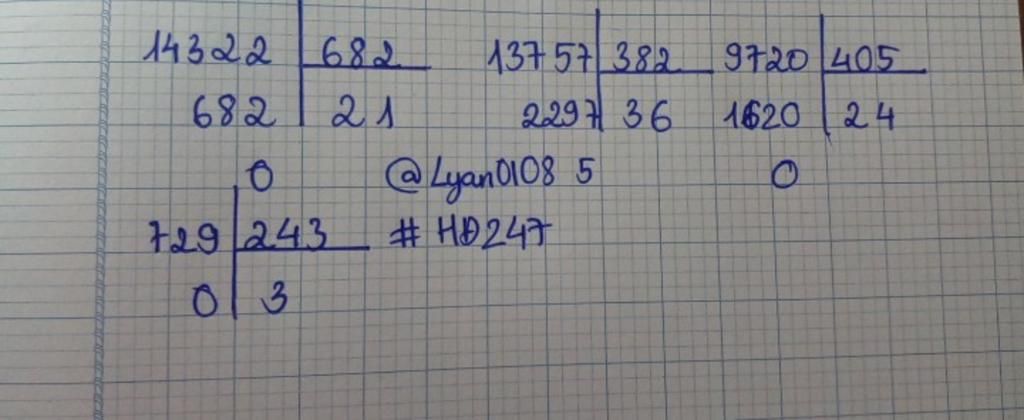 14322 682 13757 382 9720 405
682 21 2297 36 1620 24
0 @Lyan0108 5 0
729 243 # HĐ247
0 3